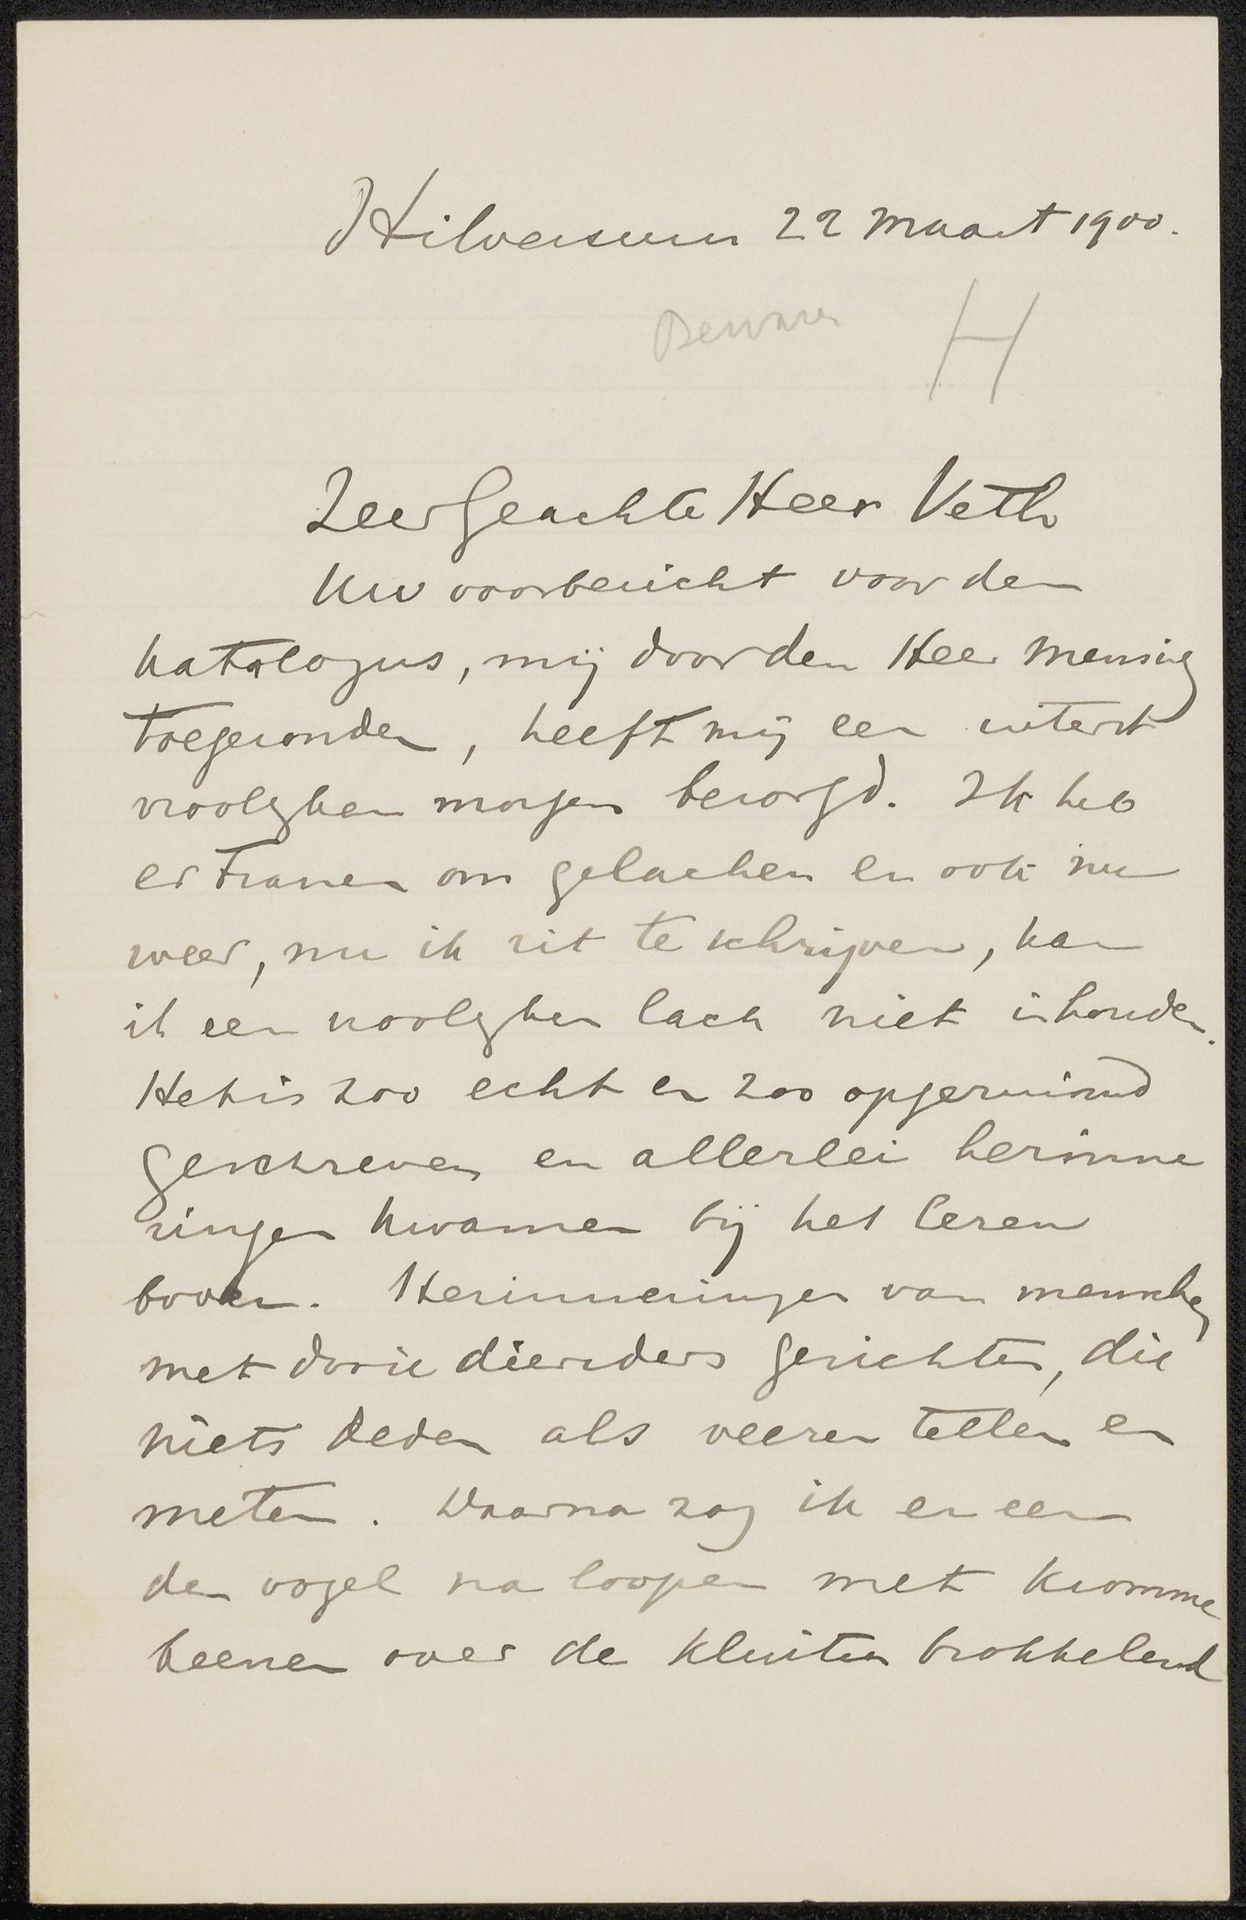 Hilversum 22 Maart 1900.
Bewaren H
Zeer Geachte Heer Veth
Uw voorbericht voor den
katalogus, mij door den Heer Mensing
toegezonden, heeft mij een uiterst
vroolyken morgen bezorgd. Ik heb
er tranen om gelachen en ook nu
weer, nu ik zit te schrijven, kan
ik een vroolyken lach niet inhouden.
Het is zoo echt en zoo opgeruimd
geschreven en allerlei herinne
ringen kwamen bij het lezen
boven. Herinneringen van menschen
met dieventers gezichten, die
niets deden als veeren tellen en
meten. Daarna zag ik er een
den vogel na loopen met kromme
beenen over de kluiten brokkelend